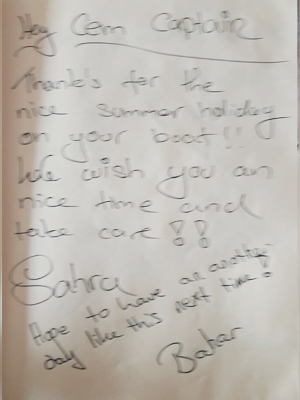 Hey Cem Captain
Thank's for the
nice summer holiday
on your boot!!
We wish you an
nice time and
take care!!
Sahra
Hope to have an another
day like this next time!
Bahar